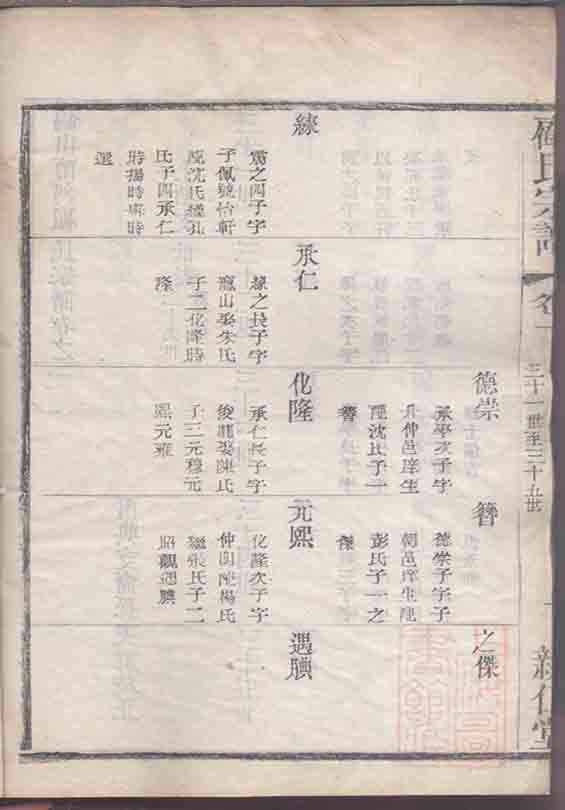 氏宗譜
卷一
三十一世至三十五世
一
堂
震之四子字
子佩號怡軒
配沈氏繼孔
氏子四承仁
時揚時與時
選
承仁
之長子字
龍山娶朱氏
子二化隆時
隆
德崇
承學次子字
升仲邑庠生
配沈氏子一
簪
化隆
承仁長子字
俊龍娶陳氏
子三元穆元
熙元雍
簪
德崇子字子
朝邑庠生配
彭氏子一之
傑
元熙
化隆次子字
仲配楊氏
繼張氏子二
照觀遇
之傑
遇